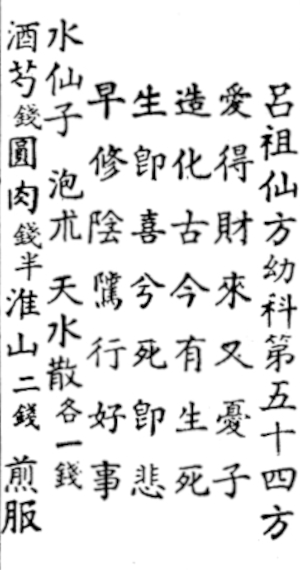 呂祖仙方幼科第五十四方
愛得財來又憂子
造化古今有生死
生卽喜兮死卽悲
早修陰騭行好事
水仙子 泡朮 天水散各一錢
酒芍錢圓肉錢半淮山二錢 煎服